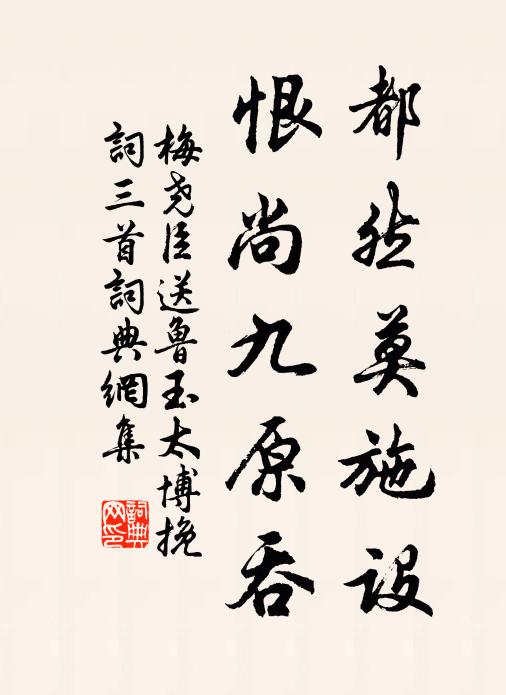 都然莫施設
恨尚九原吞
梅堯臣送魯玉太博挽
詞三首詞典網集
詞典
网印